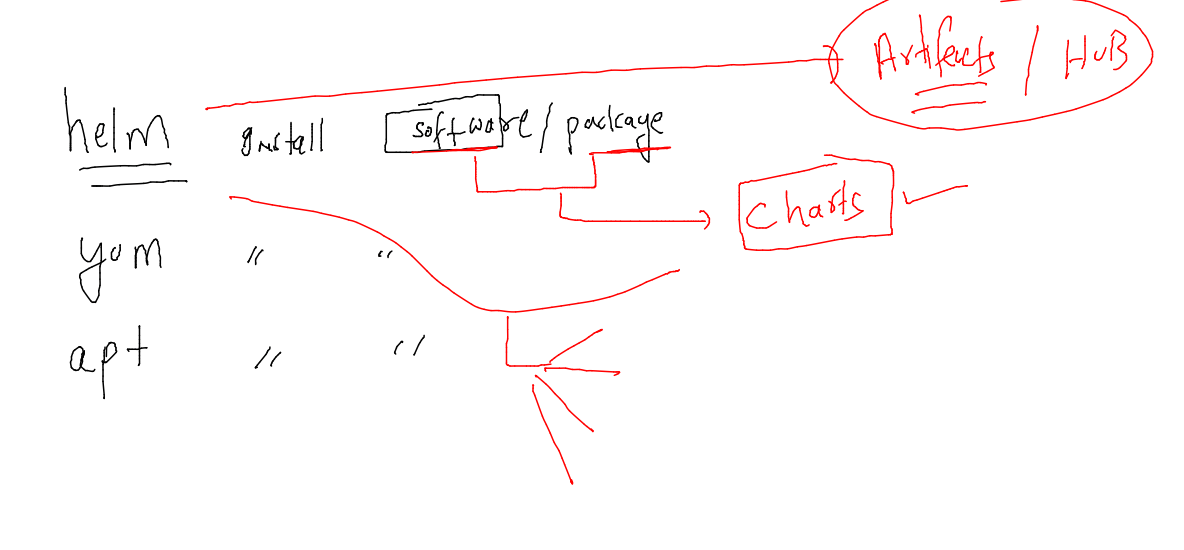 Artifacts / HuB
helm install software / package
Charts
yum " "
apt " "